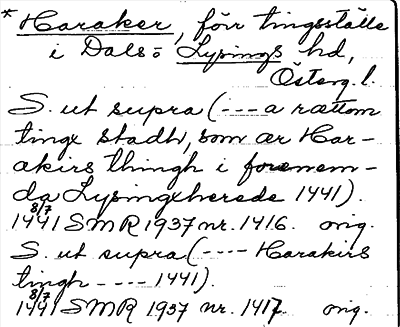 * Haraker, förr tingsställe
i Dals= Lysings hd,
Österg. l.
S. ut supra (---a rættom
tinge stadh, som ær Har-
akirs thingh i forenem-
da Lysingxherede 1441).
1441 8/7 SMR 1937 nr. 1416. orig.
S. ut supra (---- Harakirs
tingh ---- 1441).
1441 8/7 SMR 1937 nr. 1417. orig.